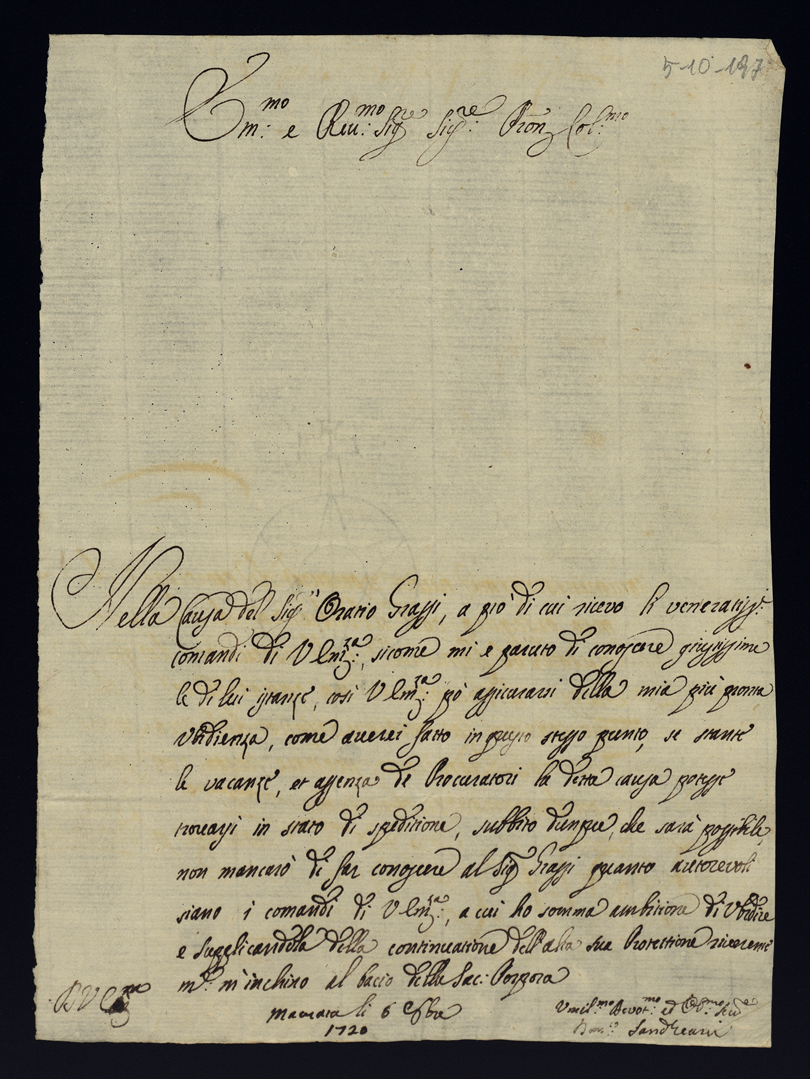 5-10-197
Em.mo e Reu.mo Sig.re Sig.re Pron Col.mo
Nella Causa del Sig.r Oratio Grassi, a prò di cui ricevo li veneratiss.i
comandi di V Em.za, sicome mi e paruto di conoscere giustissime
le di lui istanze, così V Em.za pò assicurarsi della mia più pronta
Vbidienza, come averei fatto in questo stesso punto, se stante
le vacanze, et assenza de Procuratori la detta causa potesse
trovarsi in stato di speditione, subbito dunque, che sarà possibile,
non mancarò di far conoscere al Sig Grassi quanto autorevoli
siano i comandi di V Em.za, a cui ho somma ambitione di Vbidire
e supplicandola della continuatione dell'alta sua Protettione riverente
m.te m'inchino al bacio della Sac: Porpora
D V Em.za
Macerata li 6 8bre
1720
Vmil.mo Devot.mo ed Obl.mo Ser.e
Sandreani